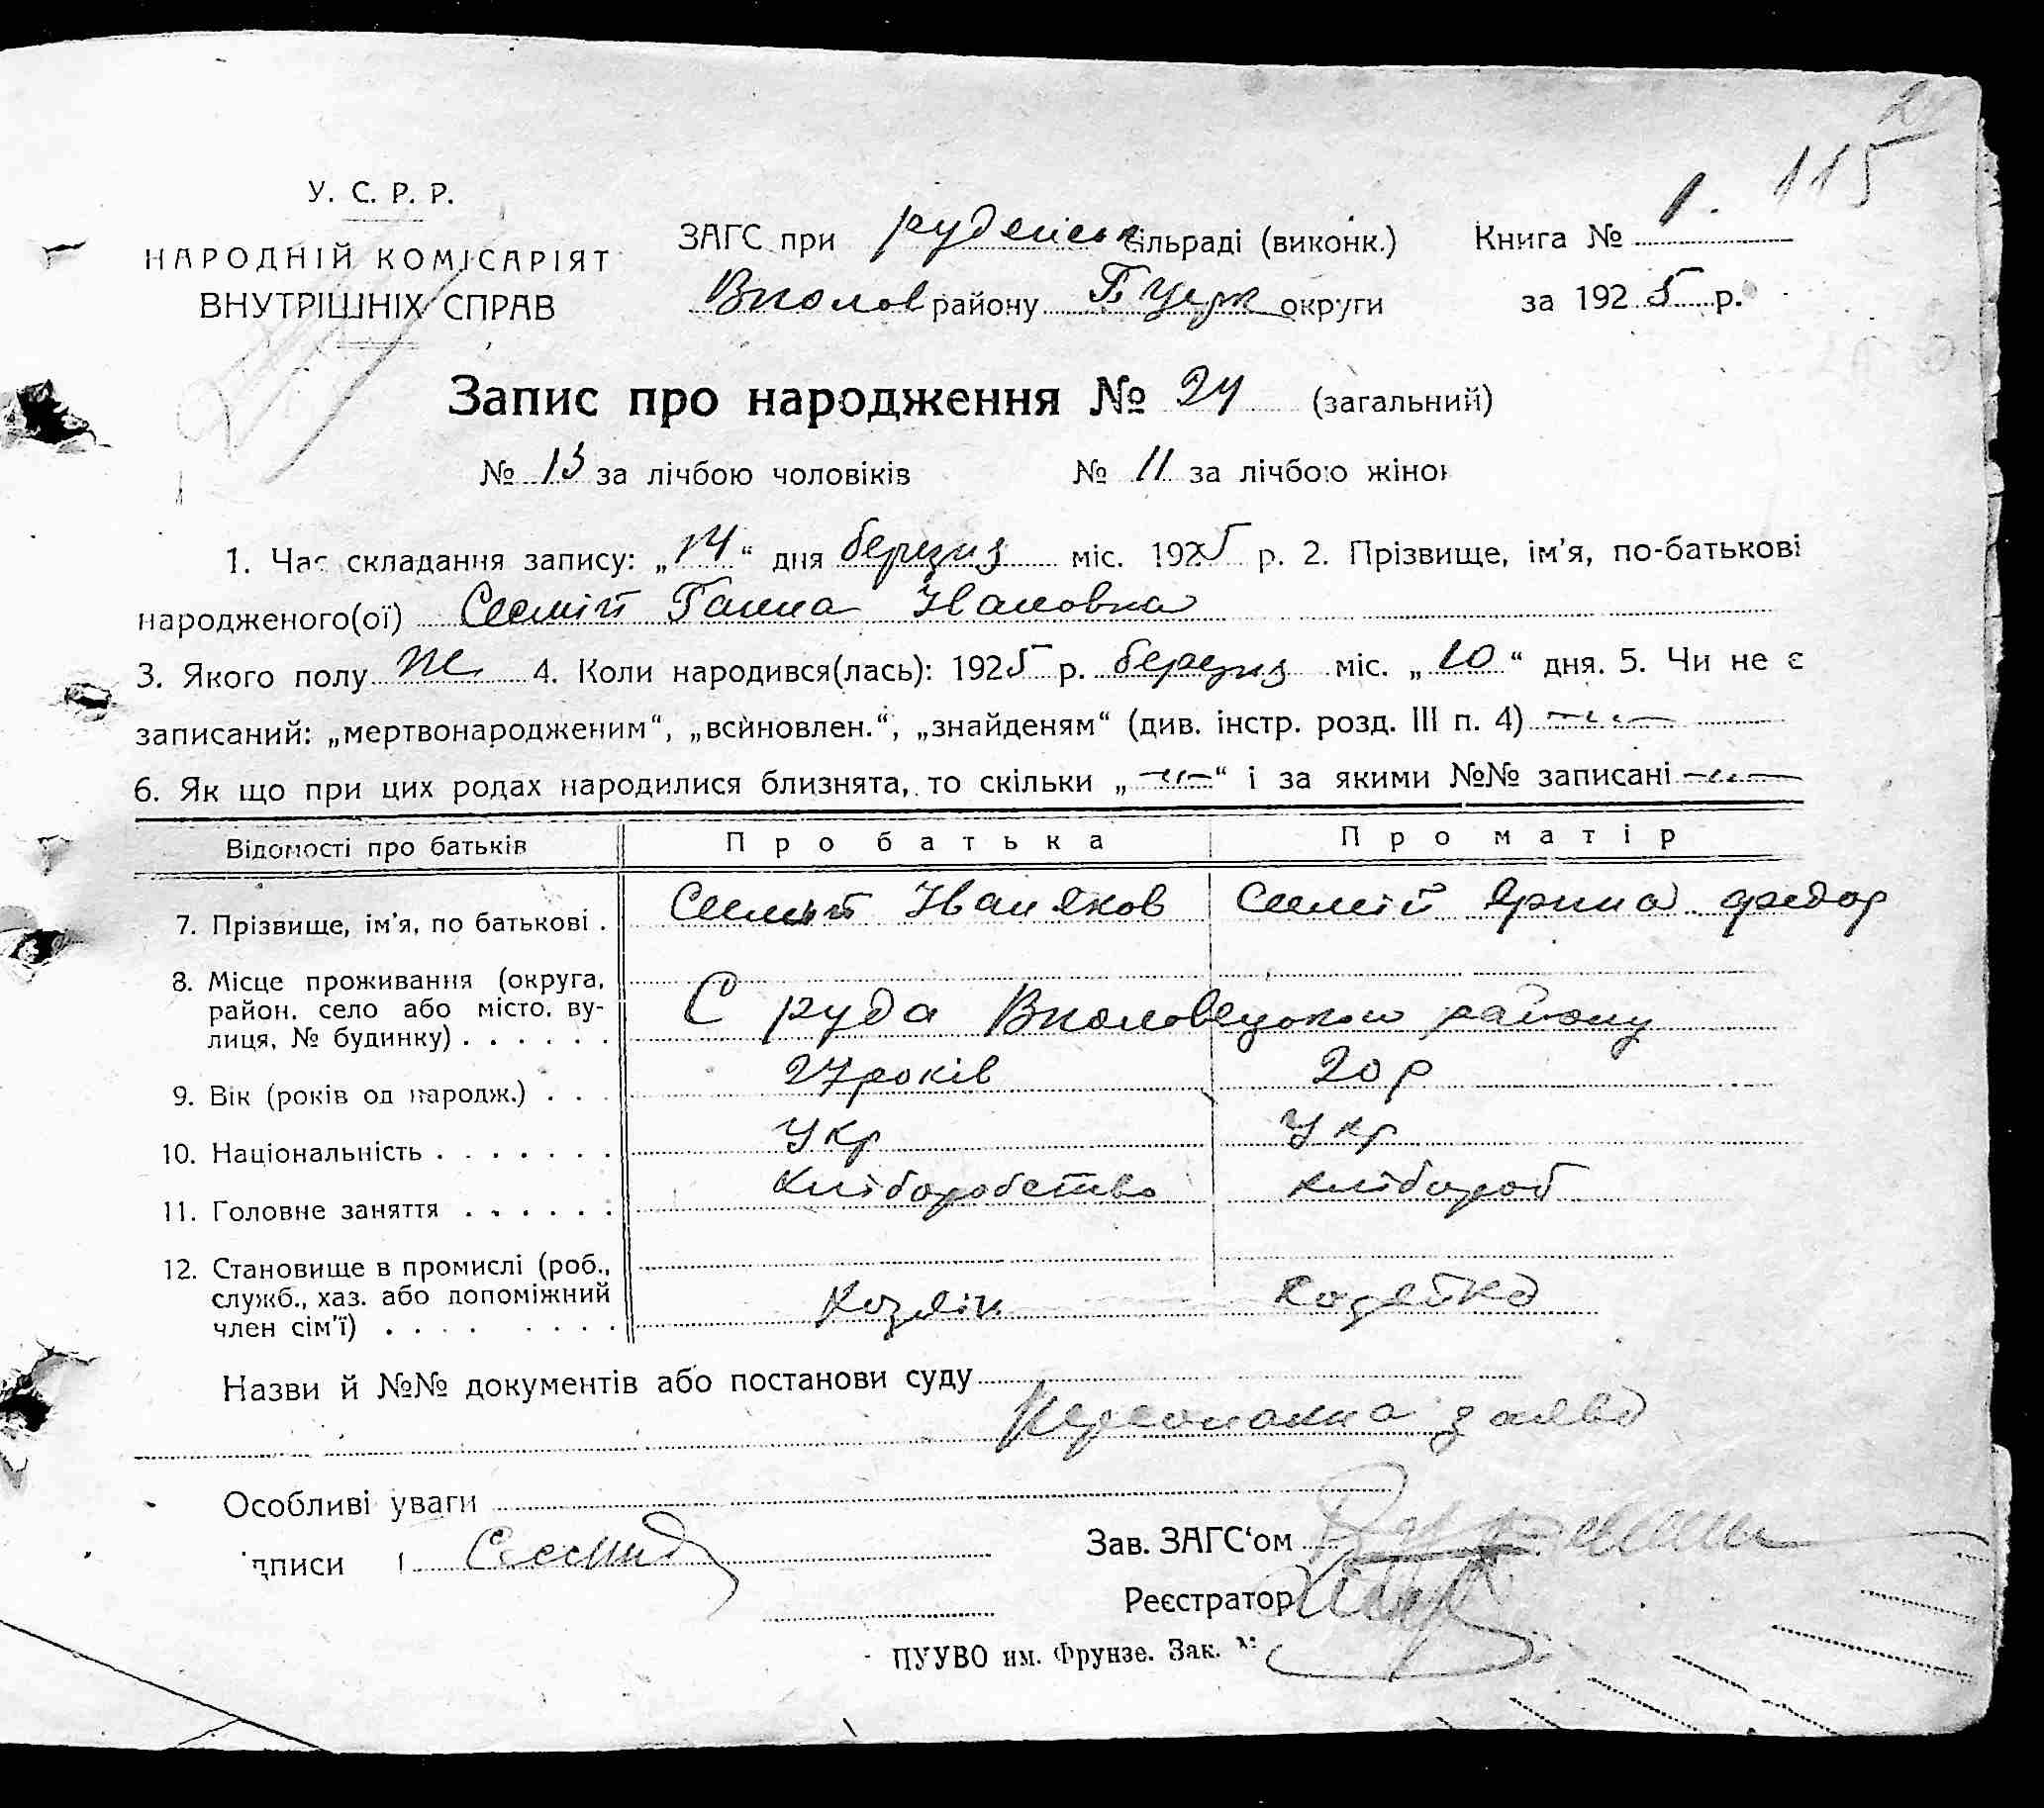 115
У. С. Р. Р.
НАРОДНІЙ КОМІСАРІЯТ
ВНУТРІШНІХ СПРАВ
ЗАГС при руденськ сільраді (виконк.)
району округи
Книга № 1.
за 1925 р.
Запис про народження № 24 (загальний)
№ 13 за лічбою чоловіків № 11 за лічбою жінок
1. Час складання запису: „14“ дня березня міс. 1925 р. 2. Прізвище, ім’я, по-батькові
народженого(ої) Ганна Івановна
3. Якого полу Ж 4. Коли народився(лась): 1925 р. березня міс. „10“ дня. 5. Чи не є
записаний: „мертвонародженим“, „всиновлен.“, „знайденям“ (див. інстр. розд. III п. 4)
6. Як що при цих родах народилися близнята, то скільки „ “ і за якими №№ записані
Відомості про батьків Про батька Про матір
7. Прізвище, ім’я, по батькові . Іван Яков Ярина федор
8. Місце проживання (округа,
район, село або місто, ву-
лиця, № будинку) . . . . . .
С руда району
9. Вік (років од народж.) . . . 27 років 20 р
10. Національність . . . . . . . Укр Укр
11. Головне заняття . . . . . . хліборобство хлібороб
12. Становище в промислі (роб.,
служб., хаз. або допоміжний
член сім’ї) . . . . . . . .
Хозяін Хозяйка
Назви й №№ документів або постанови суду
Персональна заява
Особливі уваги
дписи
Зав. ЗАГС‘ом
Реєстратор
ПУУВО им. Фрунзе. Зак. №